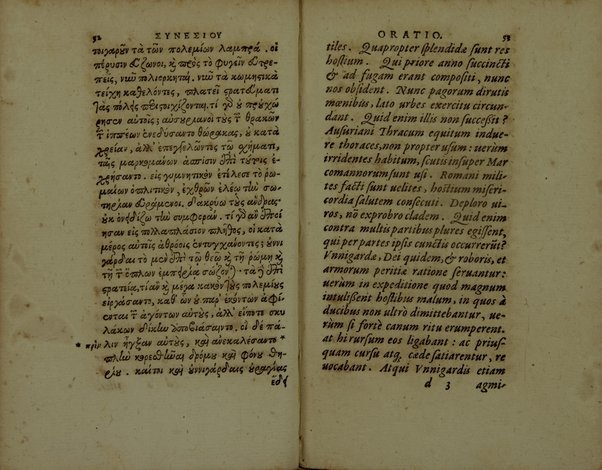 52 ΣΥΝΕΣΙΟΥ
τοιγαροῦν τὰ τῶν πολεμίων λαμπρά. οἱ
πέρυσιν εὔζωνοι, καὶ πρὸς τὸ φυγεῖν εὐτρε-
πεῖς, νῦν πολιορκηταὶ, νῦν τὰ κωμητικὰ
τείχη καθελόντες, πλατεῖ στρατεύματι
τὰς πόλεις περιστοιχίζονται. τί γὰρ οὐ προυχώ
ρησεν αὐτοῖς; αὐσουριανοὶ τοὺς τῶν θρακῶν
τῶν ἱππέων ἐνεδύσαντο θώρακας, οὐ κατὰ
χρείαν, ἀλλ' ἐπεγγελῶντες τῷ σχήματι,
ταῖς μαρκομάνων ἀσπίσιν ἐπὶ τούτοις
εἰς γυμνητικὸν ἐτέλεσε τὸ ῥω-
μαίων ὁπλιτικὸν, ἐχθρῶν ἐλέῳ τὴν σω-
τηρίαν εὑράμενοι. δακρύω τοὺς ἄνδρας·
οὐκ ὀνειδίζω τὴν συμφοράν. τί γὰρ ἂν ἐποί
ησαν εἰς πολλαπλάσιον πλῆθος, οἱ κατὰ
μέρος αὐτοῖς ἀθρόοις ἐντυγχάνοντες; οὐννι
γάρδαι τὸ μὲν ἐπὶ τῷ θεῷ καὶ τῇ ῥώμῃ καὶ
τῇ τῶν ὅπλων ἐμπειρίᾳ σώζονται· τὰ δ' ἐπὶ
στρατείᾳ, τί ἂν καὶ μέγα κακὸν τοὺς πολεμίους
εἰργάσαντο, καθ' ὧν οὐ παρ' ἑκόντων ἀφί
ενται τῶν ἀγόντων αὐτοὺς, ἀλλ' εἴποτε σκυ
λάκων δίκην ἀπεβιάσαντο, οἱ δὲ πά-
*πρὶν λιν ἦγξαν αὐτοὺς, καὶ ἀνεκαλέσαντο *
κορεσθῆναι δρόμου καὶ φόνου θη-
ρίου. καίτοι καὶ οὐννιγάρδαις
ORATIO. 53
tiles. Quapropter splendidæ sunt res
hostium. Qui priore anno succincti
& ad fugam erant compositi, nunc
nos obsident. Nunc pagorum dirutis
mœnibus, lato urbes exercitu circun-
dant. Quid enim illis non successit?
Ausuriani Thracum equitum indue-
re thoraces, non propter usum: uerum
irridentes habitum, scutis insuper Mar
comannorum sunt usi. Romani mili-
tes facti sunt uelites, hostium miseri-
cordia salutem consecuti. Deploro ui-
ros, nõ exprobro cladem. Quid enim
contra multis partibus plures egissent,
qui per partes ipsis cunctis occurrerũt?
Vnnigardæ, Dei quidem, & roboris, et
armorum peritia ratione seruantur:
uerum in expeditione quod magnum
intulissent hostibus malum, in quos à
ducibus non ultro dimittebantur, ue-
rum si fortè canum ritu erumperent.
at hi rursum eos ligabant: ac prius-
quam cursu atq; cæde satiarentur, re
uocabant. Atqui Vnnigardis etiam
d 3 agmi-